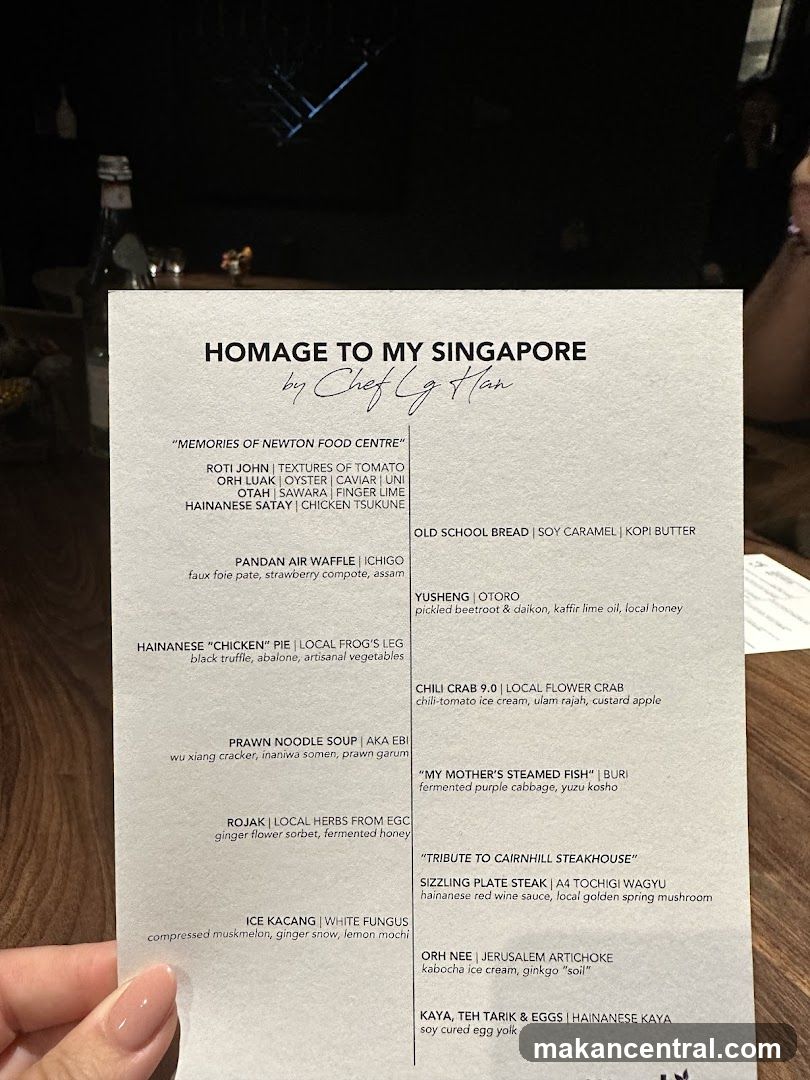 HOMAGE TO MY SINGAPORE
by Chef Lg Han
"MEMORIES OF NEWTON FOOD CENTRE"
ROTI JOHN | TEXTURES OF TOMATO
ORH LUAK | OYSTER | CAVIAR | UNI
OTAH | SAWARA | FINGER LIME
HAINANESE SATAY | CHICKEN TSUKUNE
OLD SCHOOL BREAD | SOY CARAMEL | KOPI BUTTER
PANDAN AIR WAFFLE | ICHIGO
faux foie pate, strawberry compote, assam
YUSHENG | OTORO
pickled beetroot & daikon, kaffir lime oil, local honey
HAINANESE "CHICKEN" PIE | LOCAL FROG'S LEG
black truffle, abalone, artisanal vegetables
CHILI CRAB 9.0 | LOCAL FLOWER CRAB
chili-tomato ice cream, ulam rajah, custard apple
PRAWN NOODLE SOUP | AKA EBI
wu xiang cracker, inaniwa somen, prawn garum
"MY MOTHER'S STEAMED FISH" | BURI
fermented purple cabbage, yuzu kosho
ROJAK | LOCAL HERBS FROM EGC
ginger flower sorbet, fermented honey
"TRIBUTE TO CAIRNHILL STEAKHOUSE"
SIZZLING PLATE STEAK | A4 TOCHIGI WAGYU
hainanese red wine sauce, local golden spring mushroom
ICE KACANG | WHITE FUNGUS
compressed muskmelon, ginger snow, lemon mochi
ORH NEE | JERUSALEM ARTICHOKE
kabocha ice cream, ginkgo "soil"
KAYA, TEH TARIK & EGGS | HAINANESE KAYA
soy cured egg yolk
makancentral.com